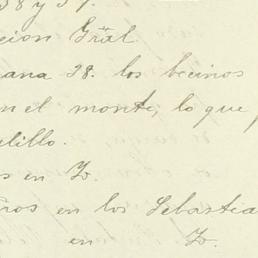 38 y 39.
cion Gral.
ana 28. los becinos
n el monte, lo que p
lillo.
s en Zo.
ños en los Sebastia
en Zo.